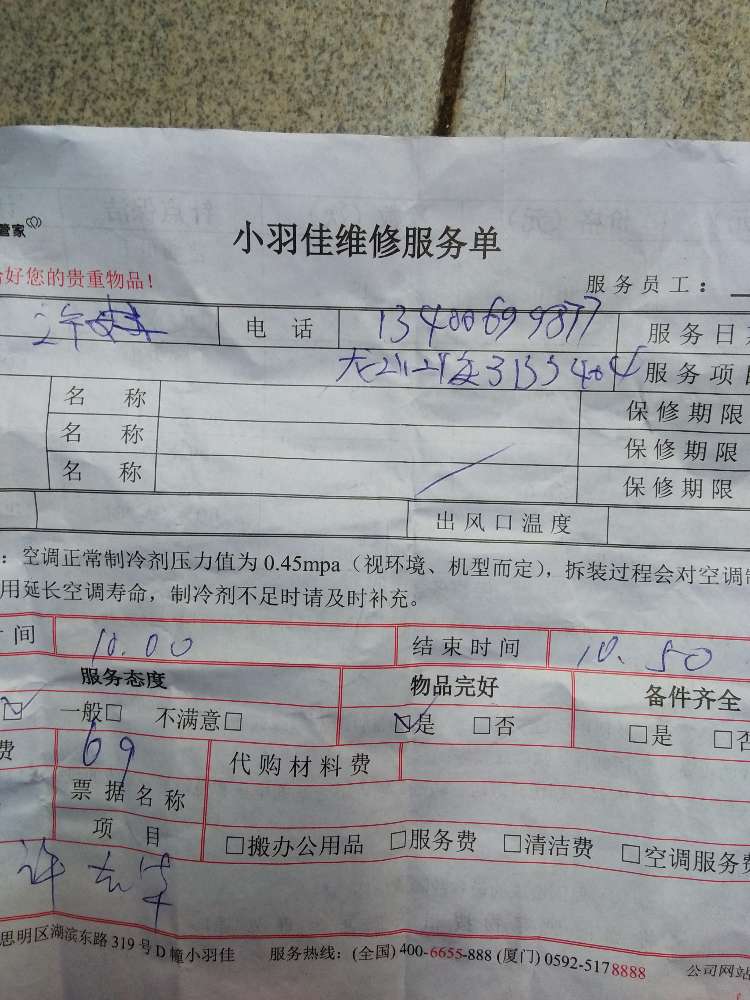 管家
小羽佳维修服务单
好您的贵重物品！
服务员工：
电 话 13400699877 服务日
3135404 服务项目
名 称 保修期限
名 称 保修期限
名 称 保修期限
出风口温度
：空调正常制冷剂压力值为 0.45mpa（视环境、机型而定），拆装过程会对空调
用延长空调寿命，制冷剂不足时请及时补充。
时间 10.00 结束时间 10.50
服务态度 物品完好 备件齐全
☑ 一般□ 不满意□ ☑是 □否 □是 □否
费 69 代购材料费
票据名称
项 目 □搬办公用品 □服务费 □清洁费 □空调服务费
许
思明区湖滨东路 319 号 D 幢小羽佳 服务热线：(全国) 400-6655-888 (厦门) 0592-5178888 公司网站